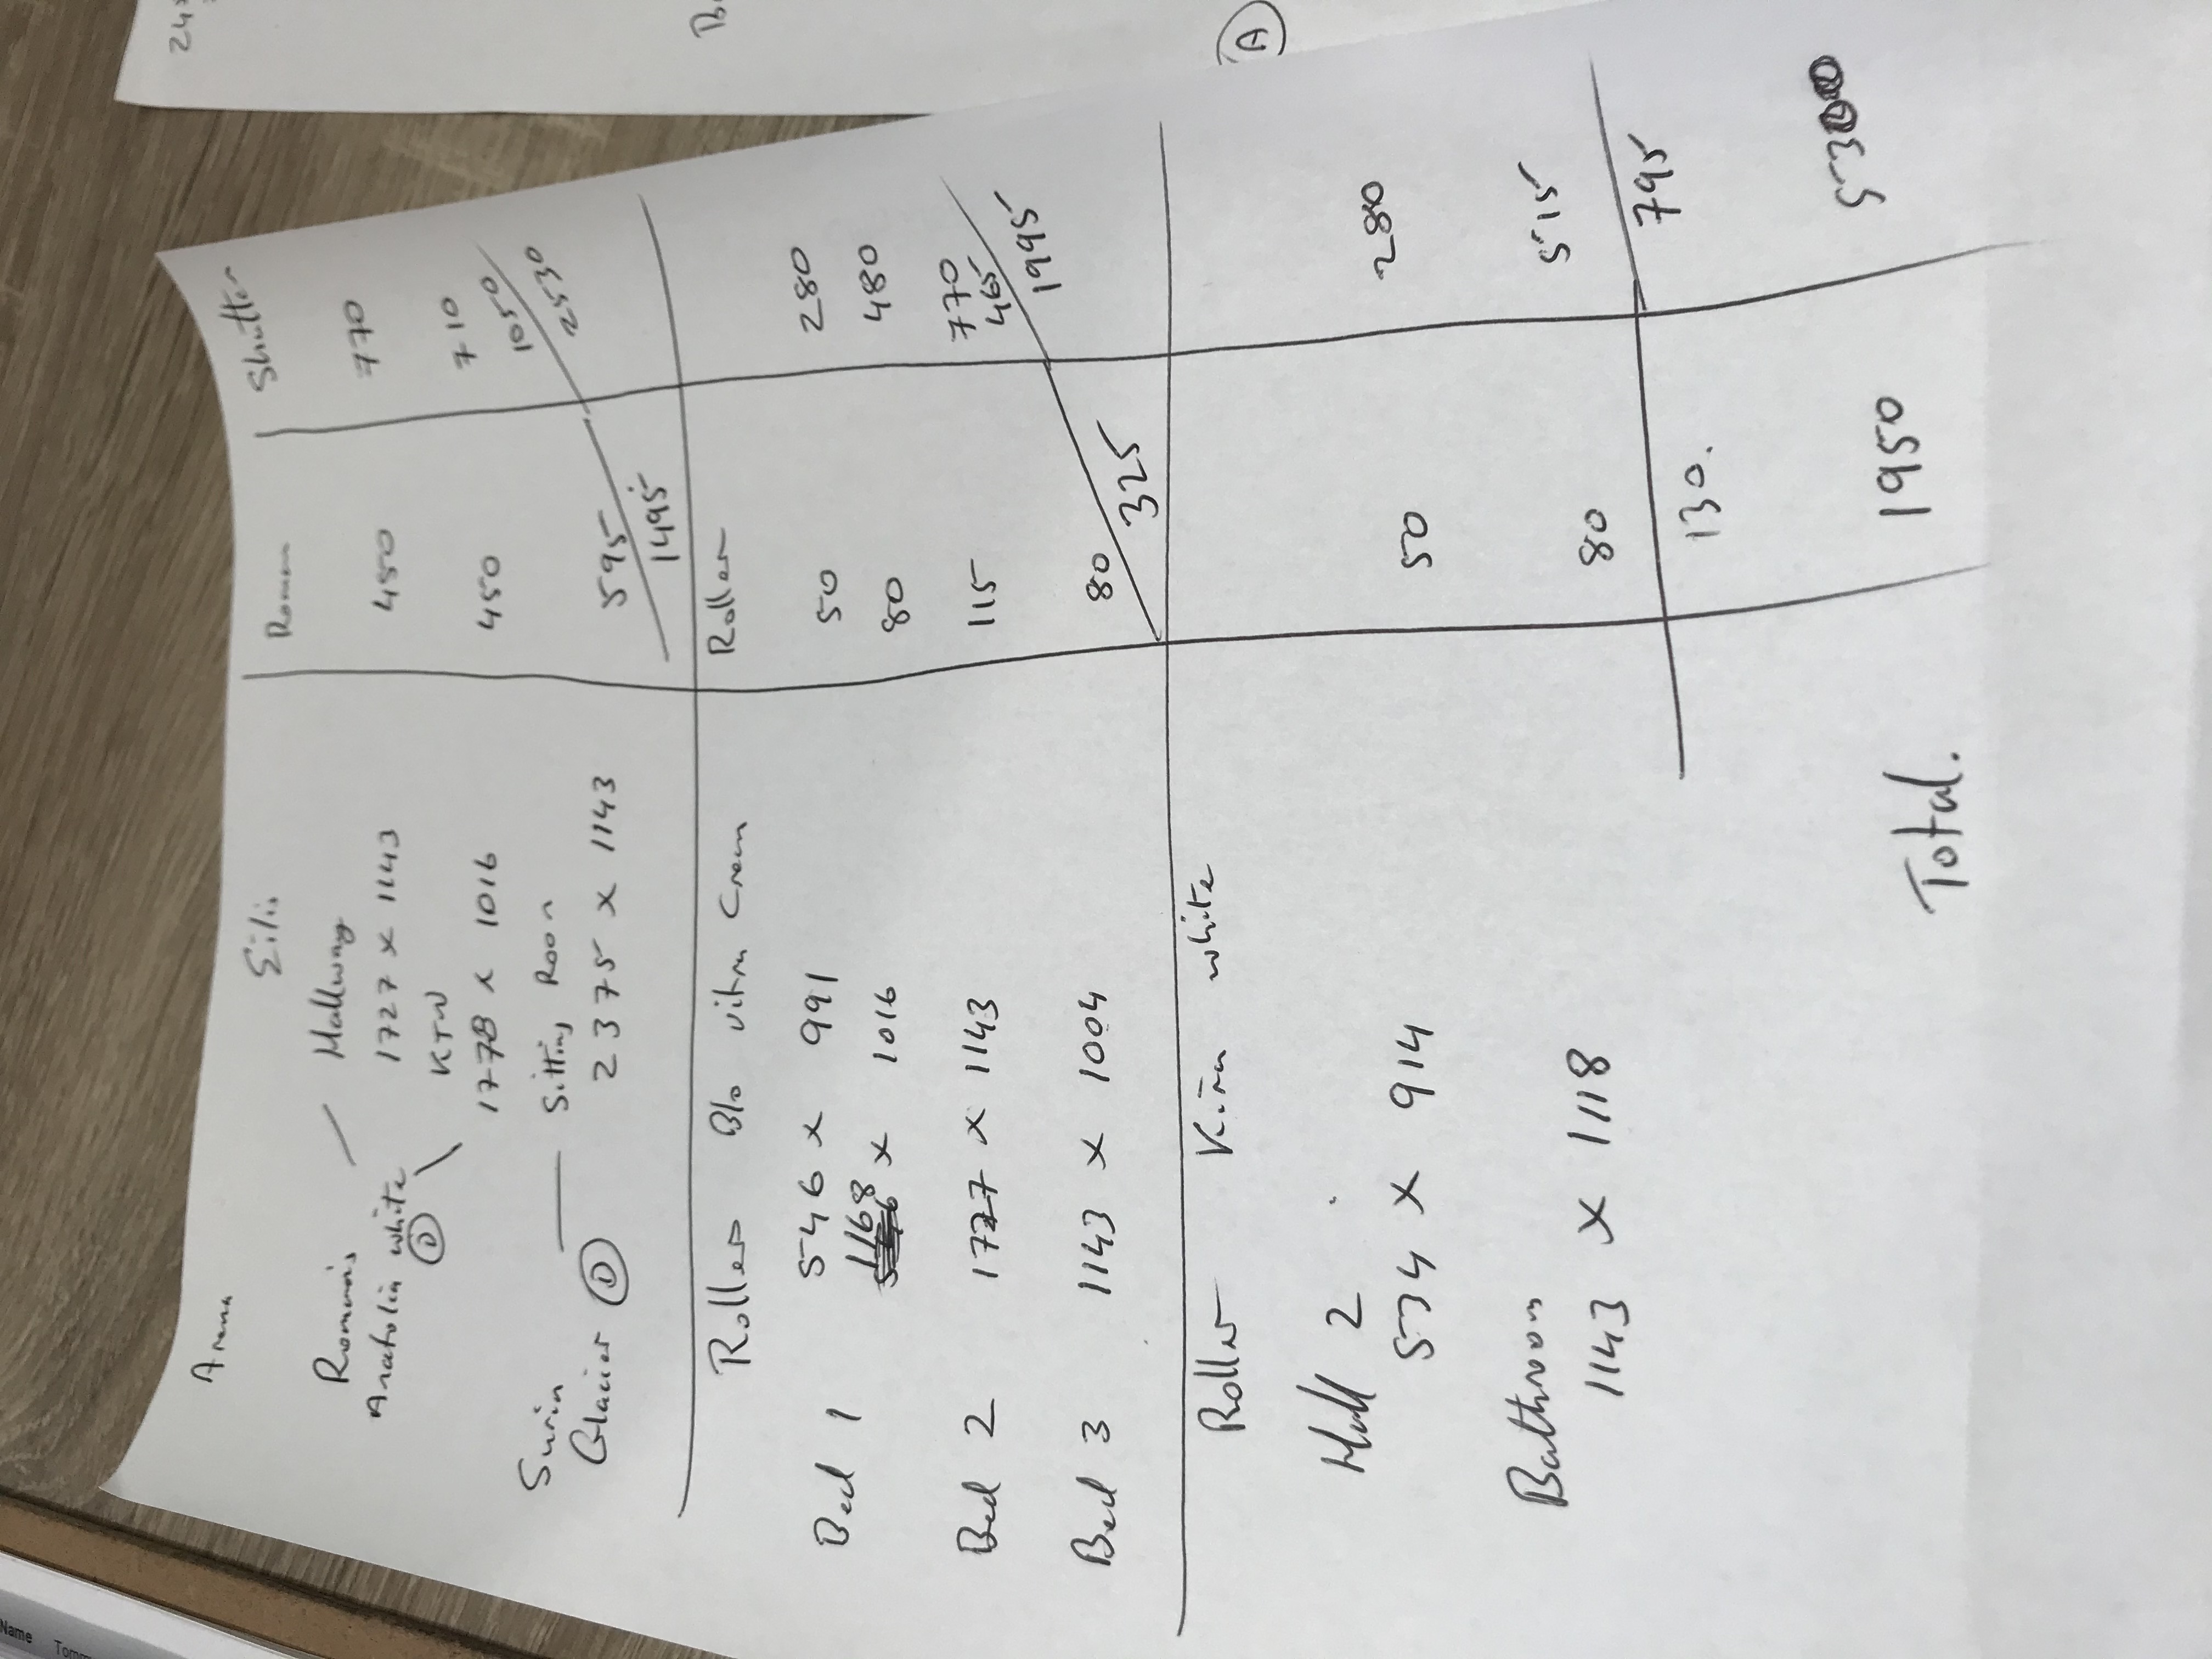 Eilis
Roman
Shutter
Romans
Hallway
Anatolia white
1727 x 1143
450
770
D
KTN
1778 x 1016
450
710
Sitting Room
Glacier D
2375 x 1143
595
1050
1495
2530
Roller Blo vitra Cream
Roller
Bed 1
546 x 991
50
280
1168 x 1016
80
480
Bed 2
1777 x 1143
115
770
Bed 3
1143 x 1004
80
465
325
1995
Roller Kira white
Hall 2
534 x 914
50
280
Bathroom
1143 x 1118
80
515
130.
795
Total.
1950
A
Name